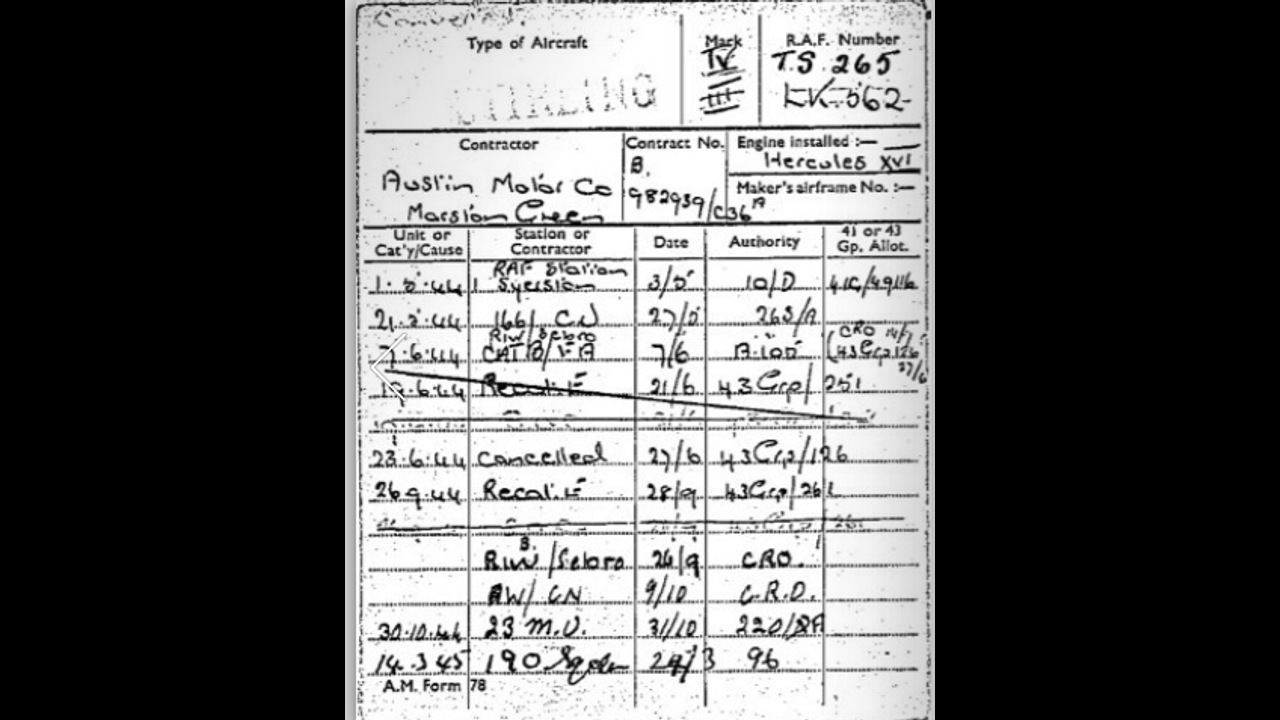 Type of Aircraft Mark R.A.F. Number
IV TS 265
STIRLING III LK 562
Contractor Contract No. Engine installed :—
B. Hercules XVI
Austin Motor Co 982939/C36 Maker's airframe No. :—
Marston Green
Unit or Cat'y/Cause Station or Contractor Date Authority 41 or 43 Gp. Allot.
RAF Station
1.5.44 Syerston 3/5 10/D 41G/49116
21.5.44 1661 CU 27/5 265/A
RIW/Sebro CRO 14/7
7.6.44 CAT B/FA 7/6 A.100 (43Grp 126
27/6
19.6.44 Recat.E 21/6 43Grp/ 251
23.6.44 Cancelled 27/6 43Grp/126
26.9.44 Recat.E 28/9 43Grp/261
B.
RIW/Sebro 26/9 CRO.
AW/CN 9/10 C.R.D.
30.10.44 23 M.U. 31/10 220/
14.3.45 190 Sqdn 24/3 96
A.M. Form 78